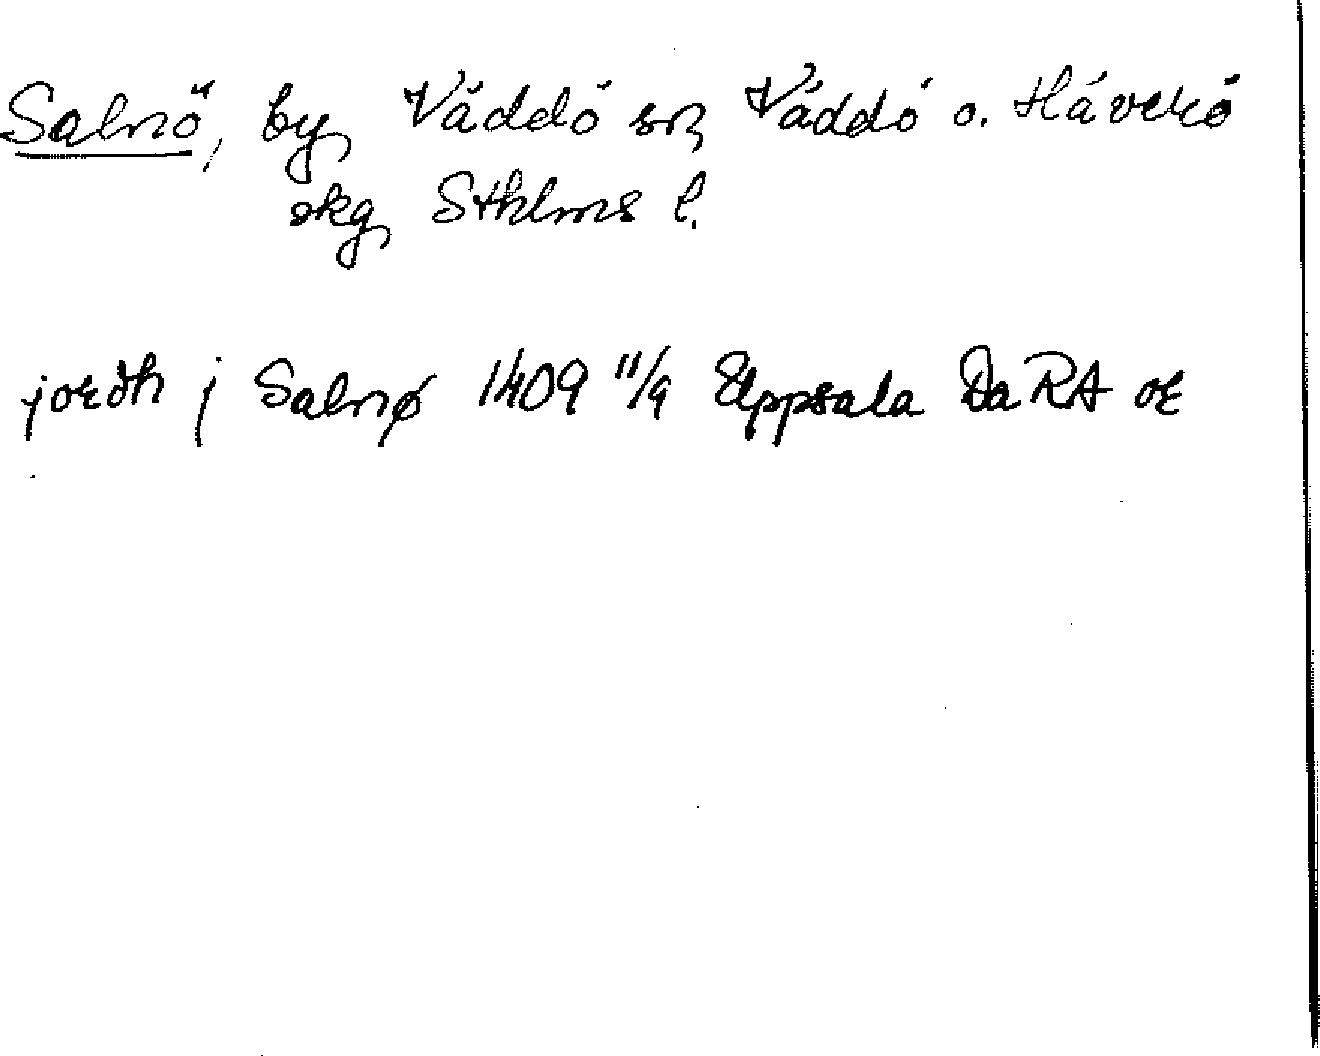 Salnö, by, Väddö sn, Väddö o. Häverö
skg, Sthlms l.
jordh j Salnø 1409 11/9 Uppsala DaRA or